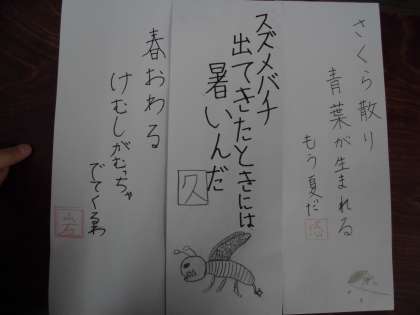 さくら散り
青葉が生まれる
もう夏だ
スズメバチ
出てきたときには
暑いんだ
久
春おわる
けむしがむっちゃ
でてくるわ